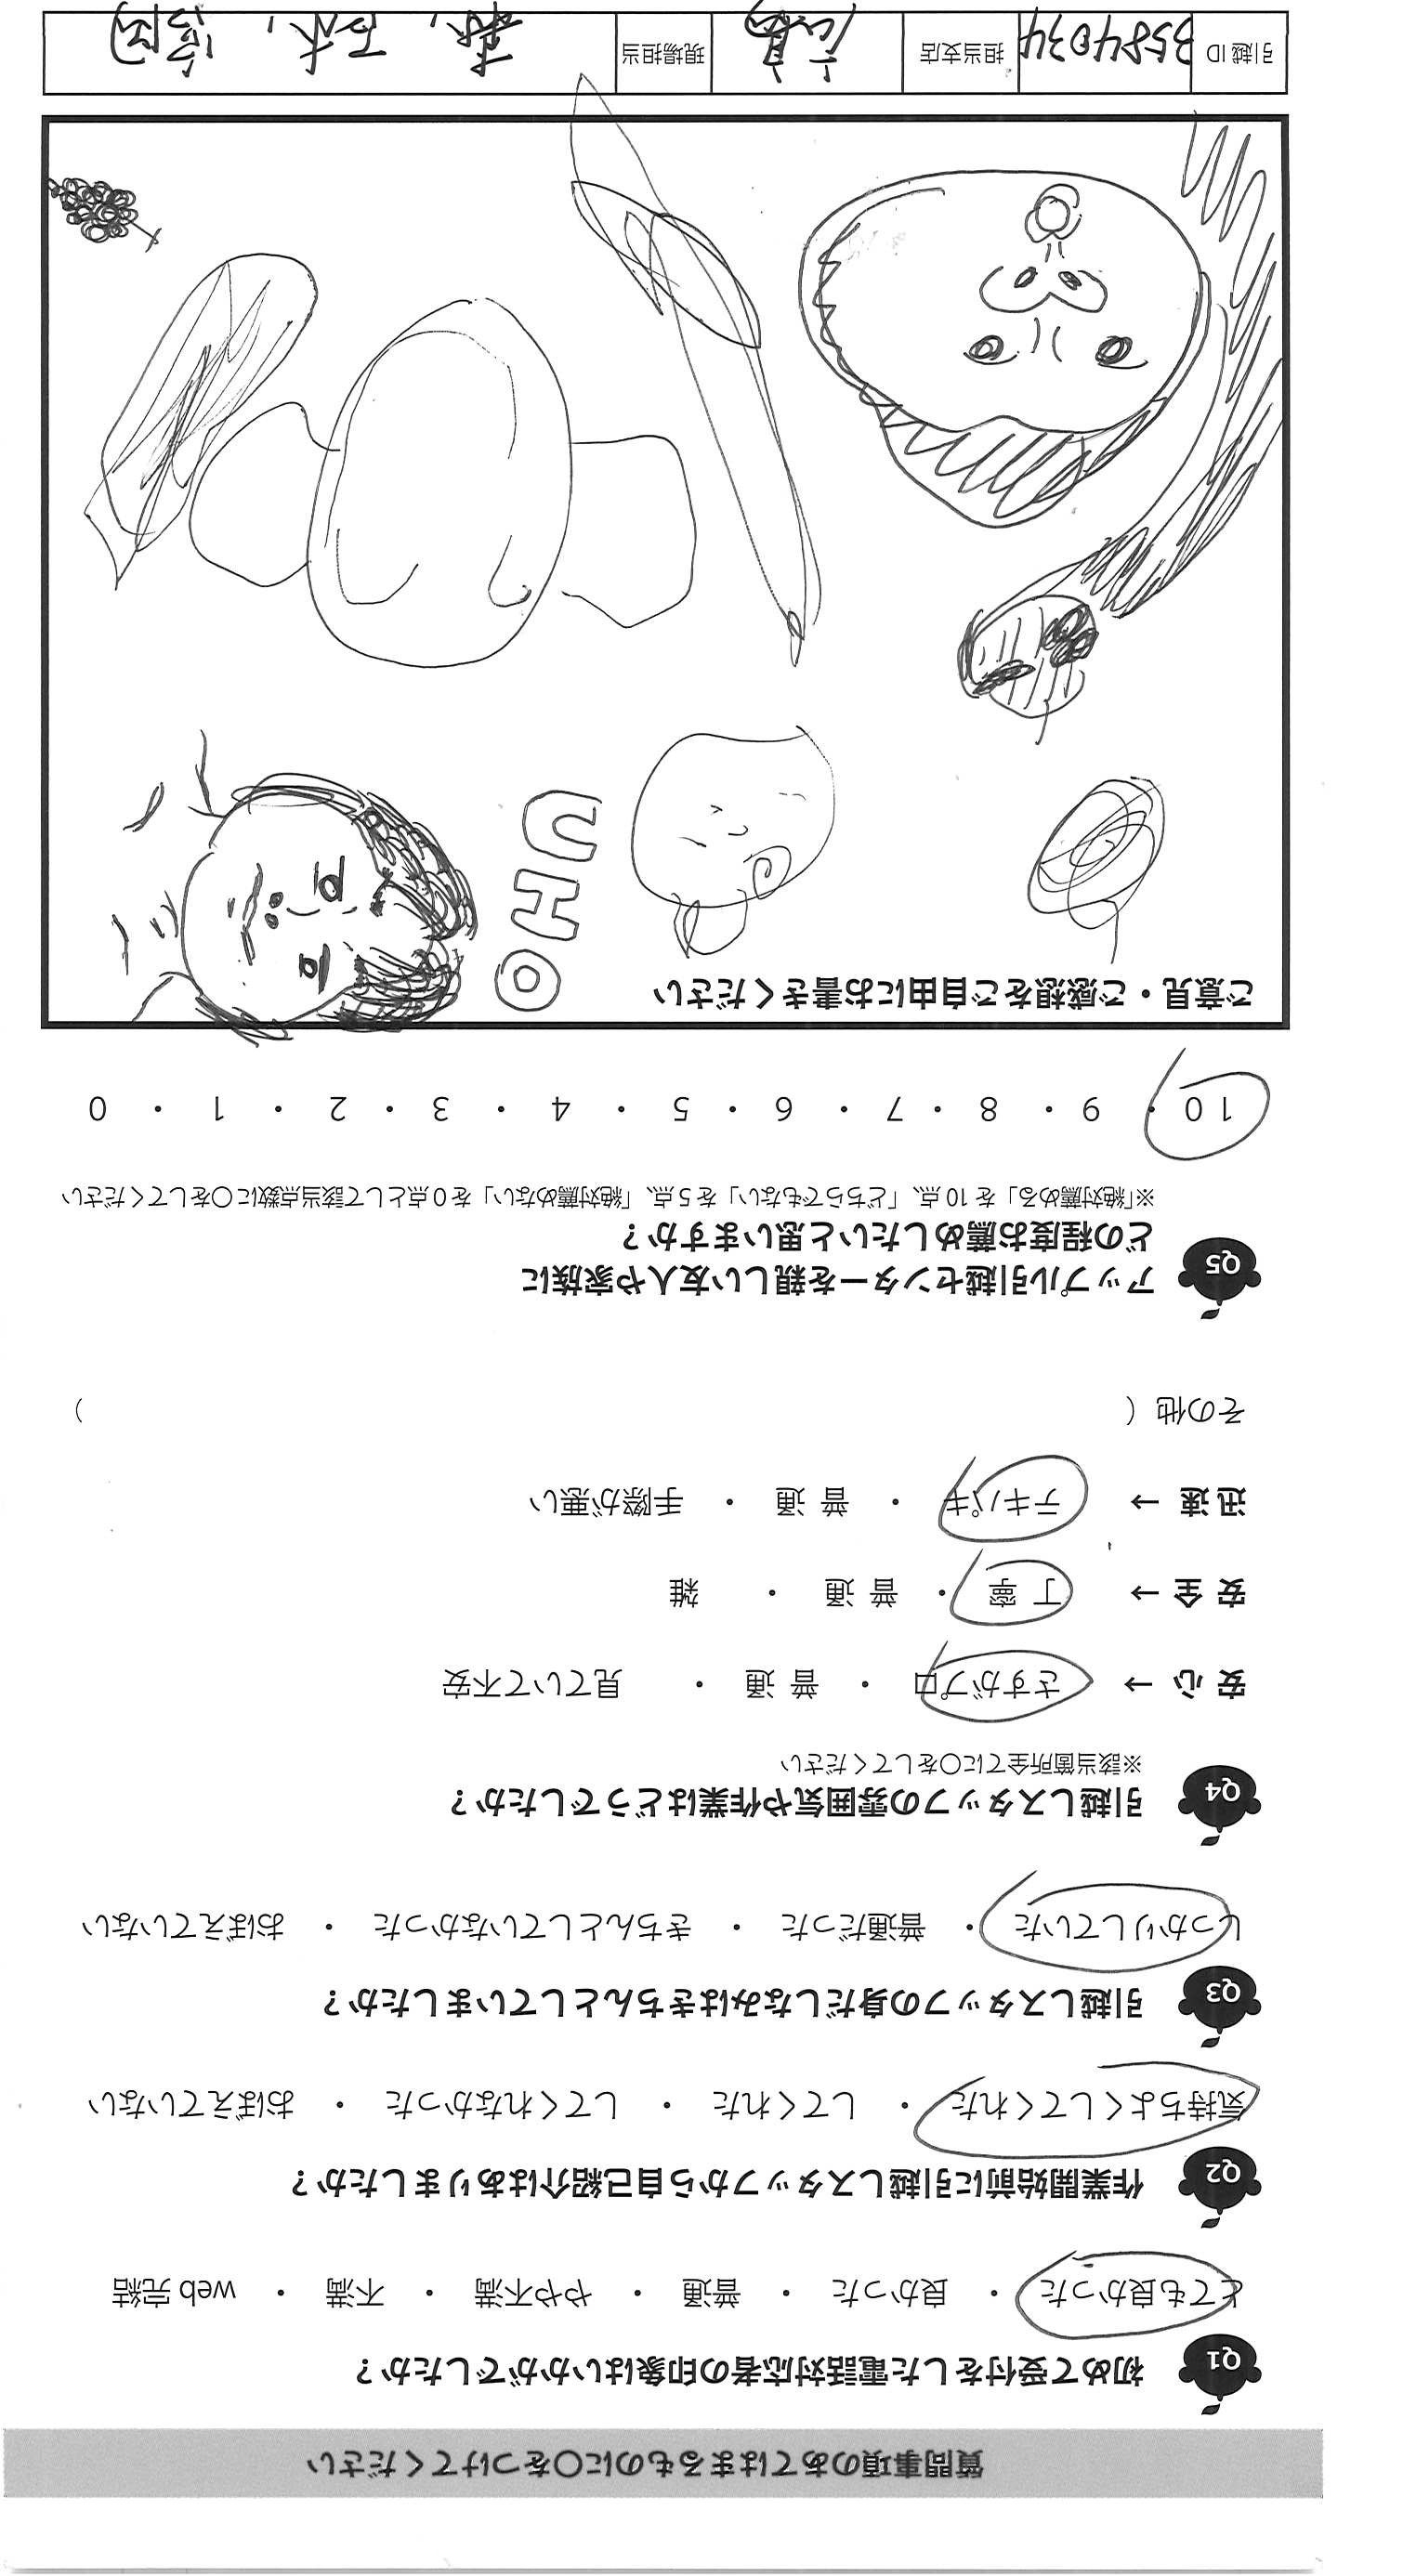 質問事項のあてはまるものに〇をつけてください
Q1 初めて受付をした電話対応者の印象はいかがでしたか？
とても良かった ・ 良かった ・ 普通 ・ やや不満 ・ 不満 ・ web 完結
Q2 作業開始前に引越しスタッフから自己紹介はありましたか？
気持ちよくしてくれた ・ してくれた ・ してくれなかった ・ おぼえていない
Q3 引越しスタッフの身だしなみはきちんとしていましたか？
しっかりしていた ・ 普通だった ・ きちんとしていなかった ・ おぼえていない
Q4 引越しスタッフの雰囲気や作業はどうでしたか？
※該当箇所全てに〇をしてください
安 心 → さすがプロ ・ 普 通 ・ 見ていて不安
安 全 → 丁 寧 ・ 普 通 ・ 雑
迅 速 → テキパキ ・ 普 通 ・ 手際が悪い
その他（ ）
Q5 アップル引越センターを親しい友人や家族に
どの程度お薦めしたいと思いますか？
※「絶対薦める」を 10 点、「どちらでもない」を 5 点、「絶対薦めない」を 0 点として該当点数に〇をしてください
10 ・ 9 ・ 8 ・ 7 ・ 6 ・ 5 ・ 4 ・ 3 ・ 2 ・ 1 ・ 0
ご意見・ご感想をご自由にお書きください
OHU
引越 ID 3584034 担当支店 広島 現場担当